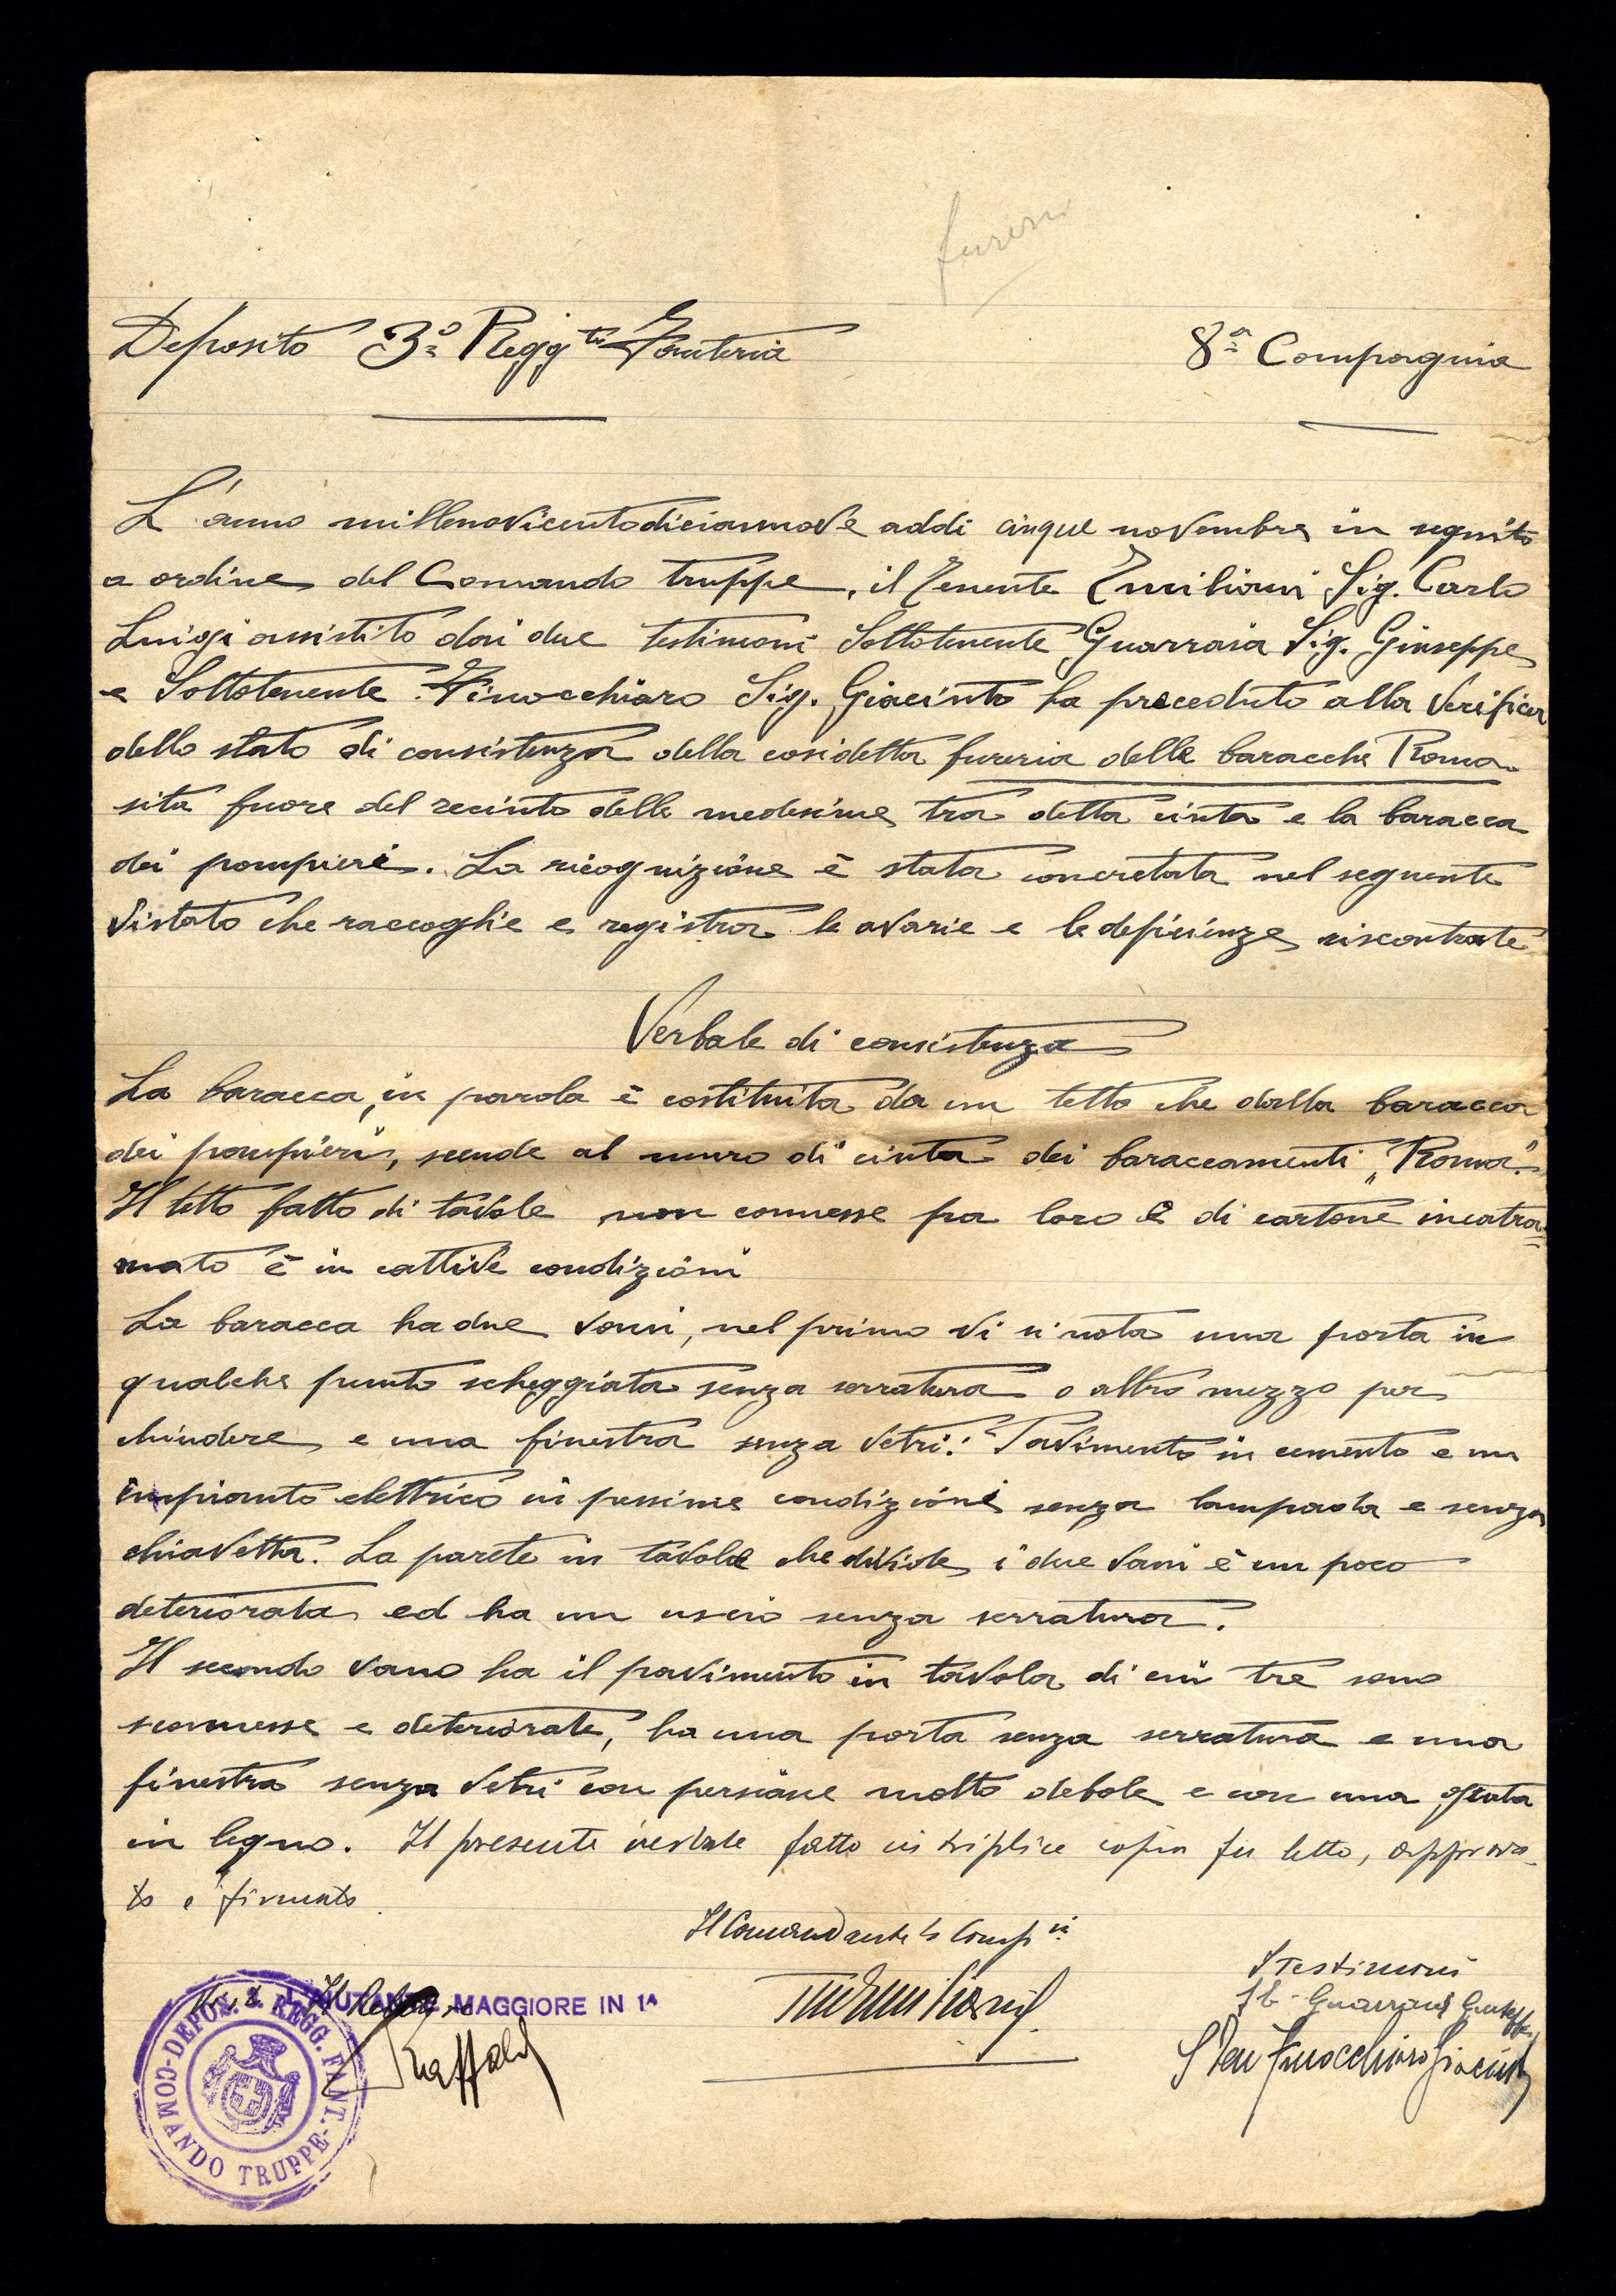 fureria
Deposito 3° Regg.to Fanteria 8ª Compagnia
L'anno millenovicentodiciannove addì cinque novembre in seguito
a ordine del Comando truppe, il Tenente Emiliani Sig. Carlo
Luigi assistito dai due testimoni Sottotenente Guarraia Sig. Giuseppe
e Sottotenente Finocchiaro Sig. Giacinto ha proceduto alla verifica
dello stato di consistenza della cosidetta fureria delle baracche Roma
sita fuore del recinto delle medesime tra detta cinta e la baracca
dei pompieri. La ricognizione è stata concretata nel seguente
vistato che raccoglie e registra le avarie e le deficienze riscontrate
Verbale di consistenza
La baracca, in parola è costituita da un tetto che dalla baracca
dei pompieri, scende al muro di cinta dei baraccamenti „Roma".
Il tetto fatto di tavole non connesse fra loro e di cartone incatra=
mato è in cattive condizioni
La baracca ha due vani, nel primo vi si nota una porta in
qualche punto scheggiata senza serratura o altro mezzo per
chiudere e una finestra senza vetri. Pavimento in cemento e un
impianto elettrico in pessime condizioni senza lampada e senza
chiavetta. La parete in tavole che divide i due vani è un poco
deteriorata ed ha un uscio senza serratura.
Il secondo vano ha il pavimento in tavola di cui tre sono
sconnesse e deteriorate, ha una porta senza serratura e una
finestra senza vetri con persiane molto debole e con una grata
in legno. Il presente verbale fatto in triplice copia fu letto, approva-
to e firmato
Il Comandante la Comp.ia
I Testimoni
L'AIUTANTE MAGGIORE IN 1ª
Emiliani
St. Guarraia Giuseppe
S Ten Finocchiaro Giacinto
COMANDO TRUPPE - DEPOS. 3. REGG. FANT.